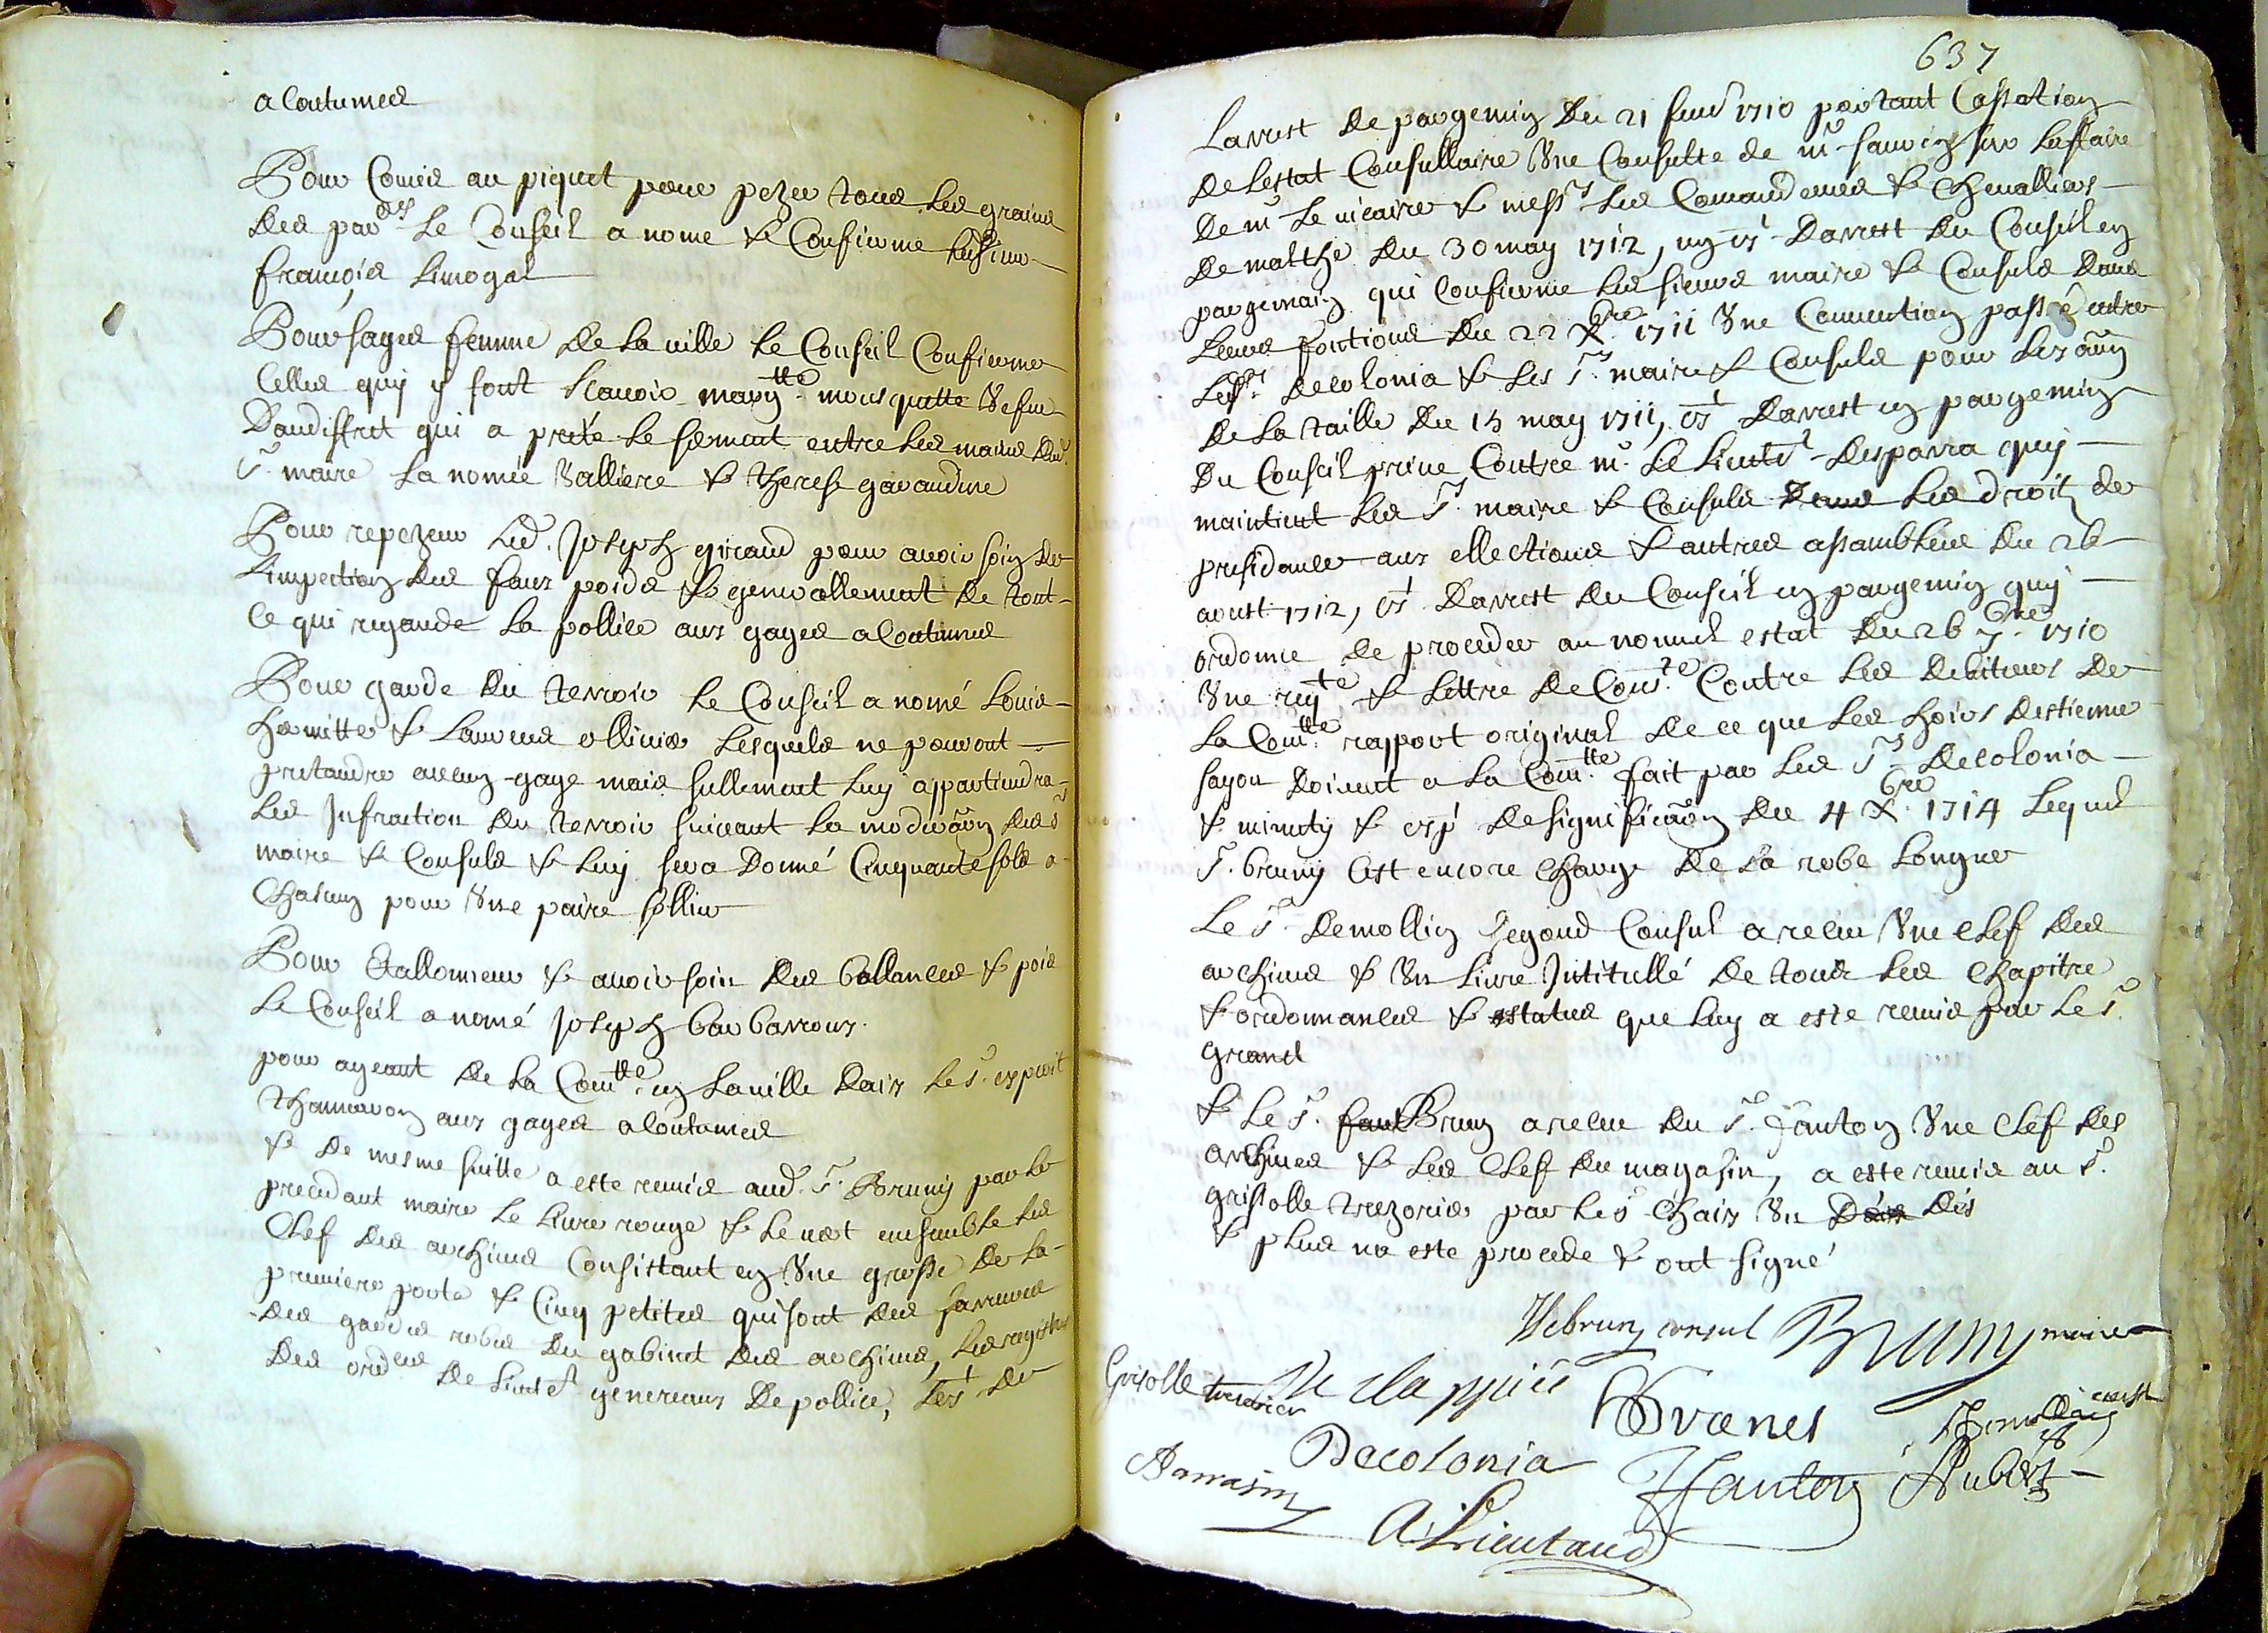 a Coutumee
Pour Comis au piquet pour pezer tous les grains
des par.ers le Conseil a nome & Confirme le sieur
françois Limogal
Pour sages femme de la ville le Conseil Confirme
Celles quy y sont scavoir marg.tte mousquette Vefue
Daudiffret qui a preté le serment entre les mains dud.
Sr. maire la nomée Valliere & Therese gavaudine
Pour repezeur led. Joseph giraud pour avoir soin de
L'inspection des faux poids & generallement de tout
Ce qui regarde la pollice aux gages a Coutumes
Pour garde du terroir le Conseil a nomé Louis
hermitte & Laurens ollivier lesquels ne pouront
pretandre aucun gage mais sullement luy appartiendra
les Infraction du terroir suivant la moderaôn des srs
maire & Consuls & luy sera Donné Cinquante sols a
Chascun pour Vne paire sollier
Pour Etallonneur & avoir soin des ballances & pois
le Conseil a nomé Joseph barbarroux
pour ageant de la Com.tte en la ville daix le s. esprit
Thaneron aux gages a Coutumes
& de mesme suitte a este remis aud. Sr. Bruny par le
precedant maire le livre rouge & le vert ensemble les
Clef des archives Consistant en Vne grosse de la
premiere porte & Cinq petites qui sont des sarrures
des gardes robes du gabinet des archives, les registres
des ord.ces de Lieut.t generaux de pollice, Lest. de
637
Larrest de pargemin du 21 feu.r 1710 portant Cassation
de Lestat Consullaire Vne Consulte de mr. sauvin sur laffaire
de mr. le vicaire & mess.rs les Comandeurs & Chevalliers
de malthe du 30 may 1712, un ext. Darrest du Conseil en
pargemain qui Confirme les sieurs maire & Consuls dans
leurs fontions du 22 Xbre 1711 Vne Convention passée entre
les srs. Decolonia & les Srs. maire & Consuls pour les aûn
de la taille du 15 may 1711, ext. Darrest en pargemin
du Conseil prive Contre mr. le Lieute.t Desparra quy
maintient les Srs. maire & Consuls dans les droit de
presidance aux ellections & autres assamblees du 26
aoust 1712, ext. Darrest du Conseil en pargemin quy
ordonne de proceder au nouvel estat du 26 7bre 1710
Vne req.te & Lettre de Com.re Contre les debiteurs de
la Com.tte rapport original de ce que les hoirs destienne
fayon doivent a la Com.tte fait par les Srs Decolonia
& minuty & exp. de significaôn du 4 Xbre 1714 lequel
Sr. bruny Cest encore Charge de la robe longue
Le Sr. Demollin segond Consul a receu Vne Clef des
archives & Vn livre Intitullé de tous les Chapitre
& ordonnances & estatus que luy a este remis par le Sr.
grand
& le Sr. fant Brun a receu du Sr. fanton Vne Clef des
archives & les Clef du magasin, a este remis au Sr.
grisolle trezorier par le sr Chaix Vn Déis Dés
& plus na este procede & ont signé
Hebrun consul Bruny maire
Grisolle tresorier Clappier
Decolonia Fanton Aubert
A Lieutaud